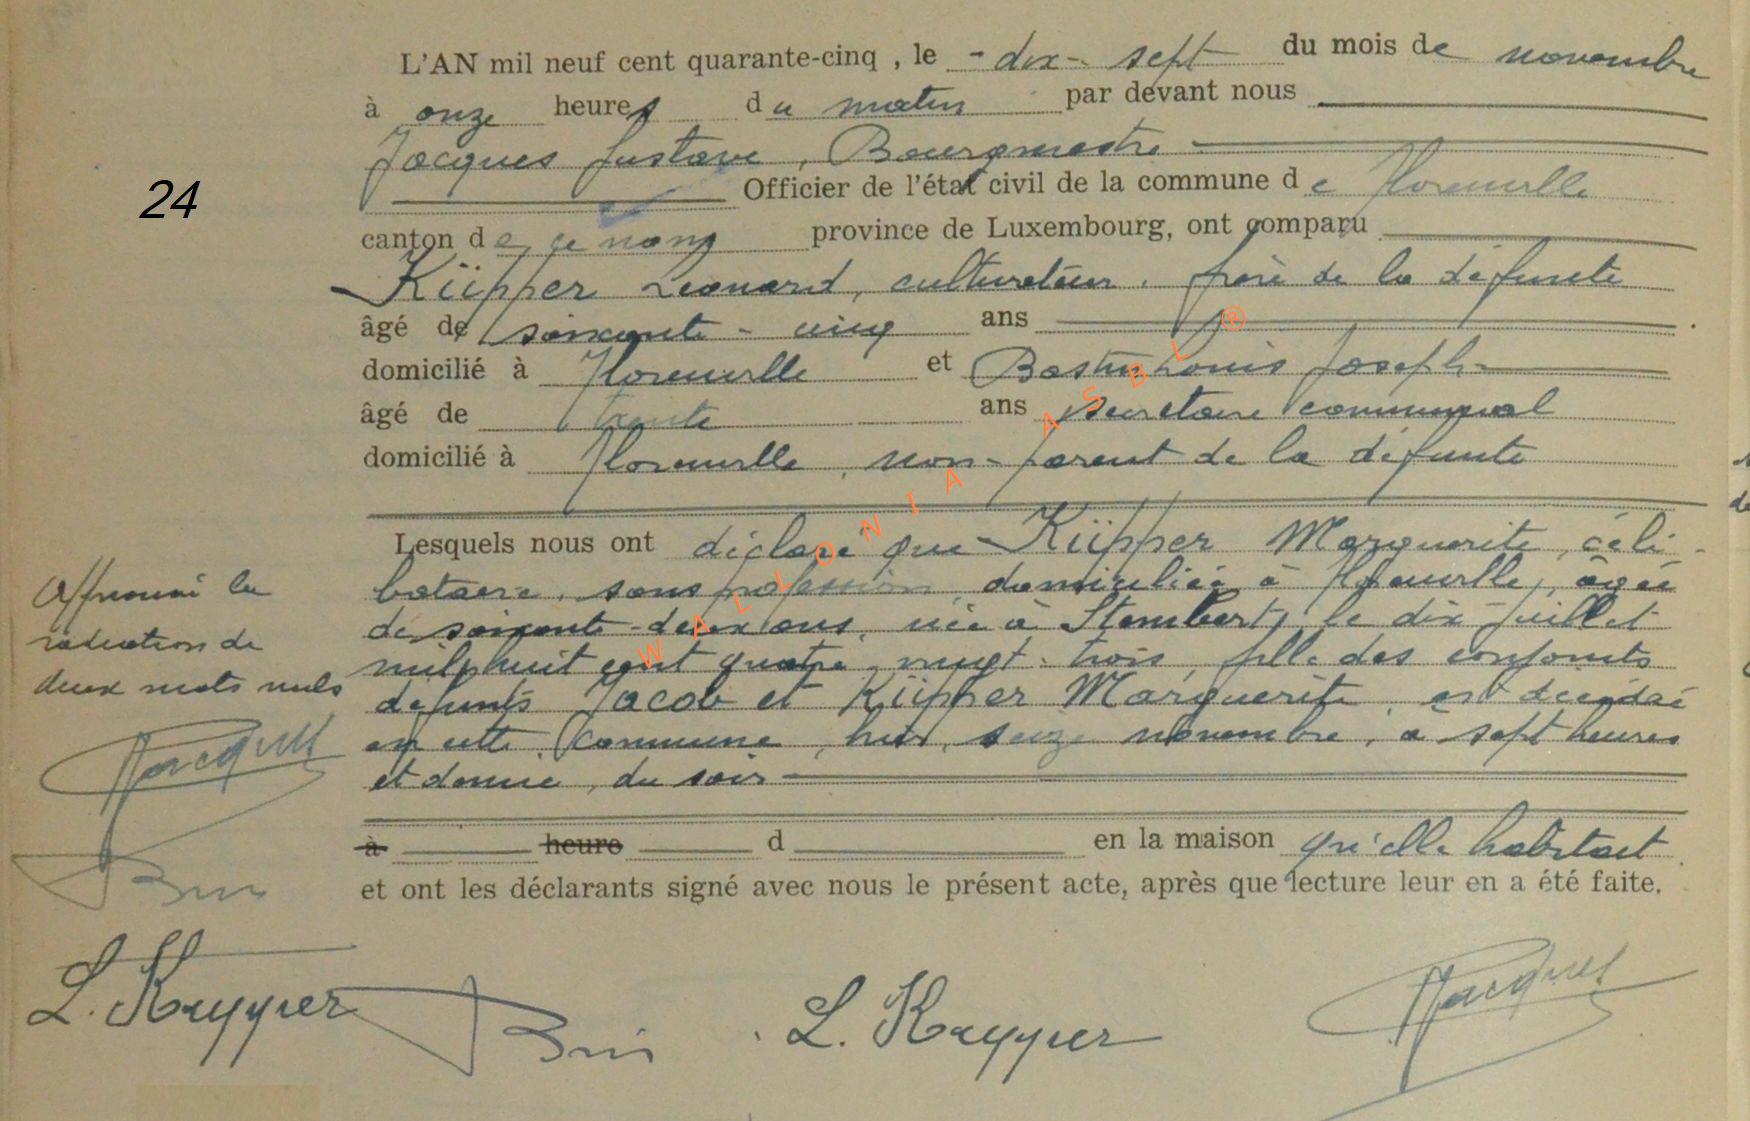 L'AN mil neuf cent quarante-cinq , le - dix - sept du mois de novembre
à onze heures du matin par devant nous
Jacques Gustave , Bourgmestre
24
Officier de l'état civil de la commune de Florenville
canton de ce nom province de Luxembourg, ont comparu
Küpper Léonard, cultivateur, frère de la défunte
âgé de soixante - cinq ans
domicilié à Florenville et Bastin Louis Joseph
âgé de trente ans secrétaire communal
domicilié à Florenville , non - parent de la défunte
Lesquels nous ont déclaré que Küpper Marguerite, céli-
bataire, sans profession, domiciliée à Florenville, âgée
de soixante-deux ans, née à Stembert, le dix juillet
mil huit cent quatre-vingt-trois, fille des conjoints
défunts Jacob et Küpper Marguerite, est décédée
en cette commune, hier, seize novembre, à sept heures
et demie, du soir
à heure d en la maison qu'elle habitait
et ont les déclarants signé avec nous le présent acte, après que lecture leur en a été faite.
Approuvé la
radiation de
deux mots nuls
Jacques
L. Kuypper
L. Kuypper
Jacques
WALLONIA ASBL ®